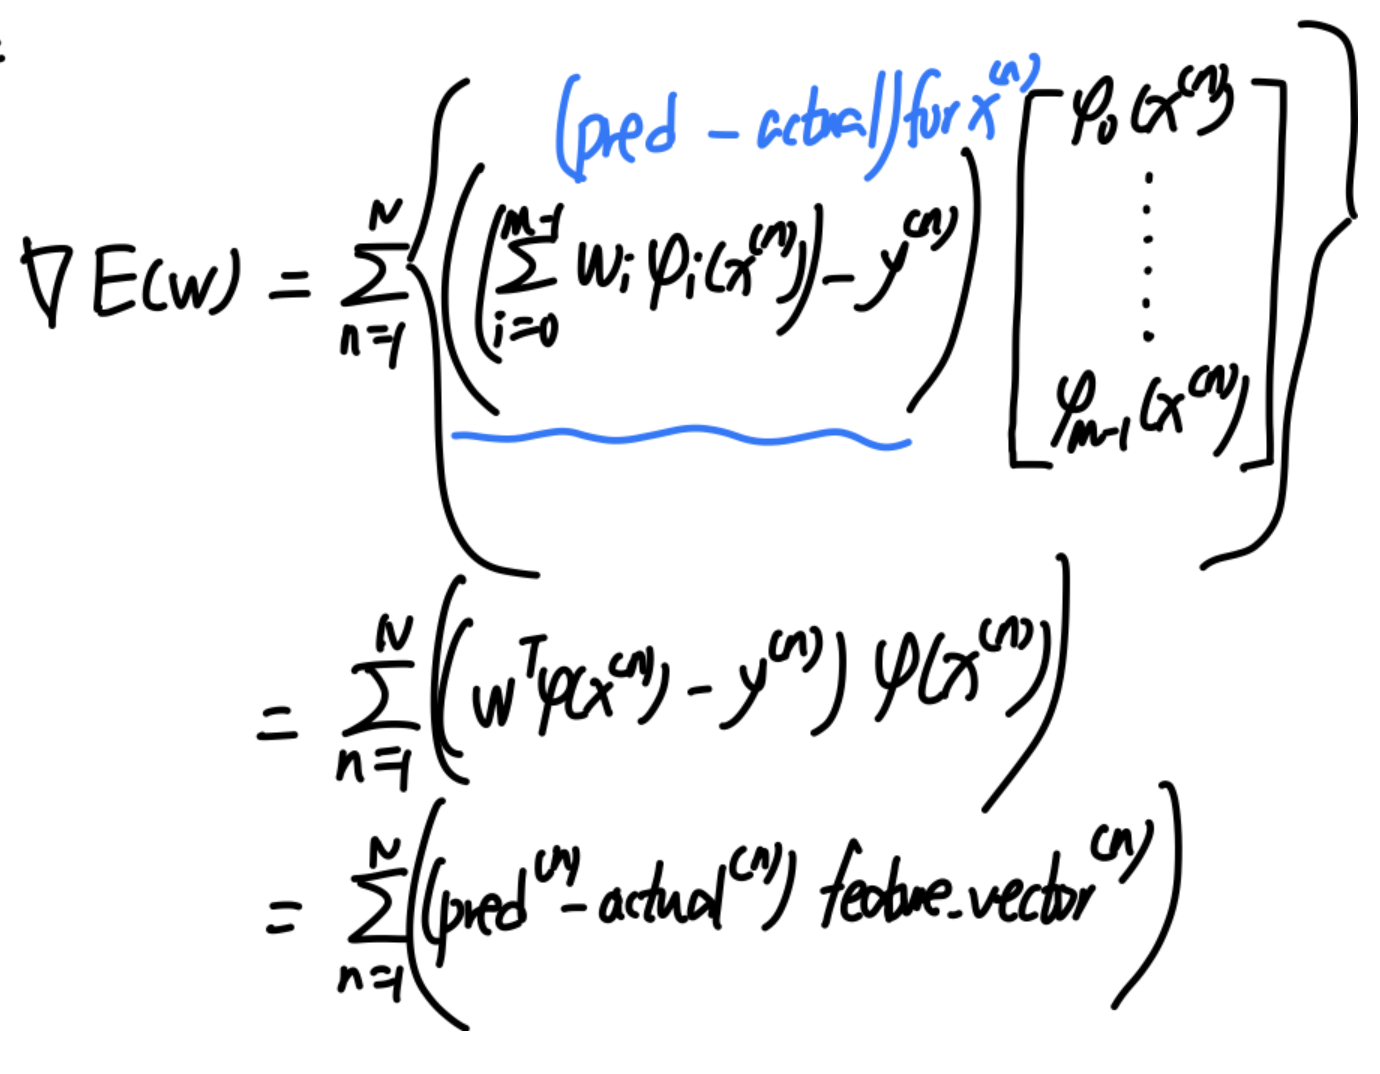 (pred - actual) for x^(n)
∇E(w) = ∑_{n=1}^{N} { ( ( ∑_{i=0}^{M-1} w_i φ_i(x^(n)) ) - y^(n) ) [ φ_0(x^(n)) ⋮ φ_{M-1}(x^(n)) ] }
= ∑_{n=1}^{N} ( ( w^T φ(x^(n)) - y^(n) ) φ(x^(n)) )
= ∑_{n=1}^{N} ( (pred^(n) - actual^(n)) feature_vector^(n) )